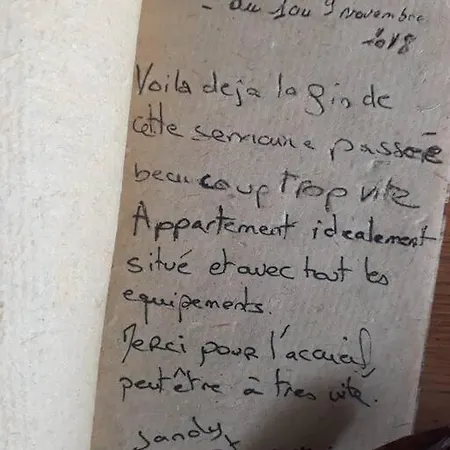 - du 1 au 9 novembre
2018
Voila deja la fin de
cette semaine passée
beaucoup trop vite
Appartement idealement
situé et avec tout les
equipements.
Merci pour l'accueil,
peut être à tres vite.
Sandy